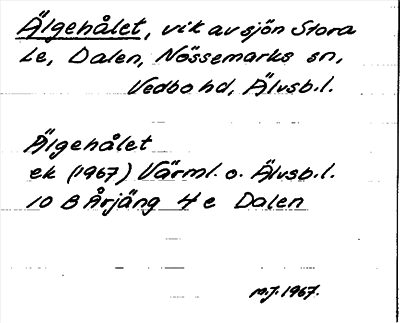 Älgehålet, vik av sjön Stora
Le, Dalen, Nössemarks sn,
Vedbo hd, Älvsb.l.
Älgehålet
ek (1967) Värml. o. Älvsb.l.
10 B Årjäng 4e Dalen
M.J. 1967.